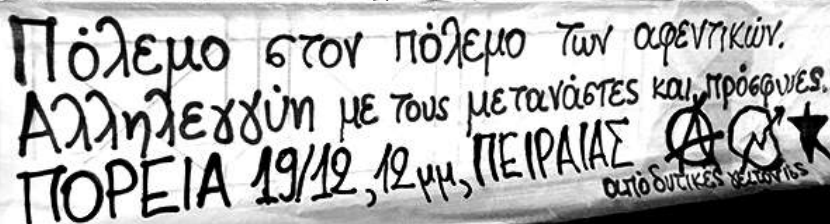 Πόλεμο στον πόλεμο των αφεντικών.
Αλληλεγγύη με τους μετανάστες και πρόσφυγες.
ΠΟΡΕΙΑ 19/12, 12μμ, ΠΕΙΡΑΙΑΣ
από δυτικές γειτονιές